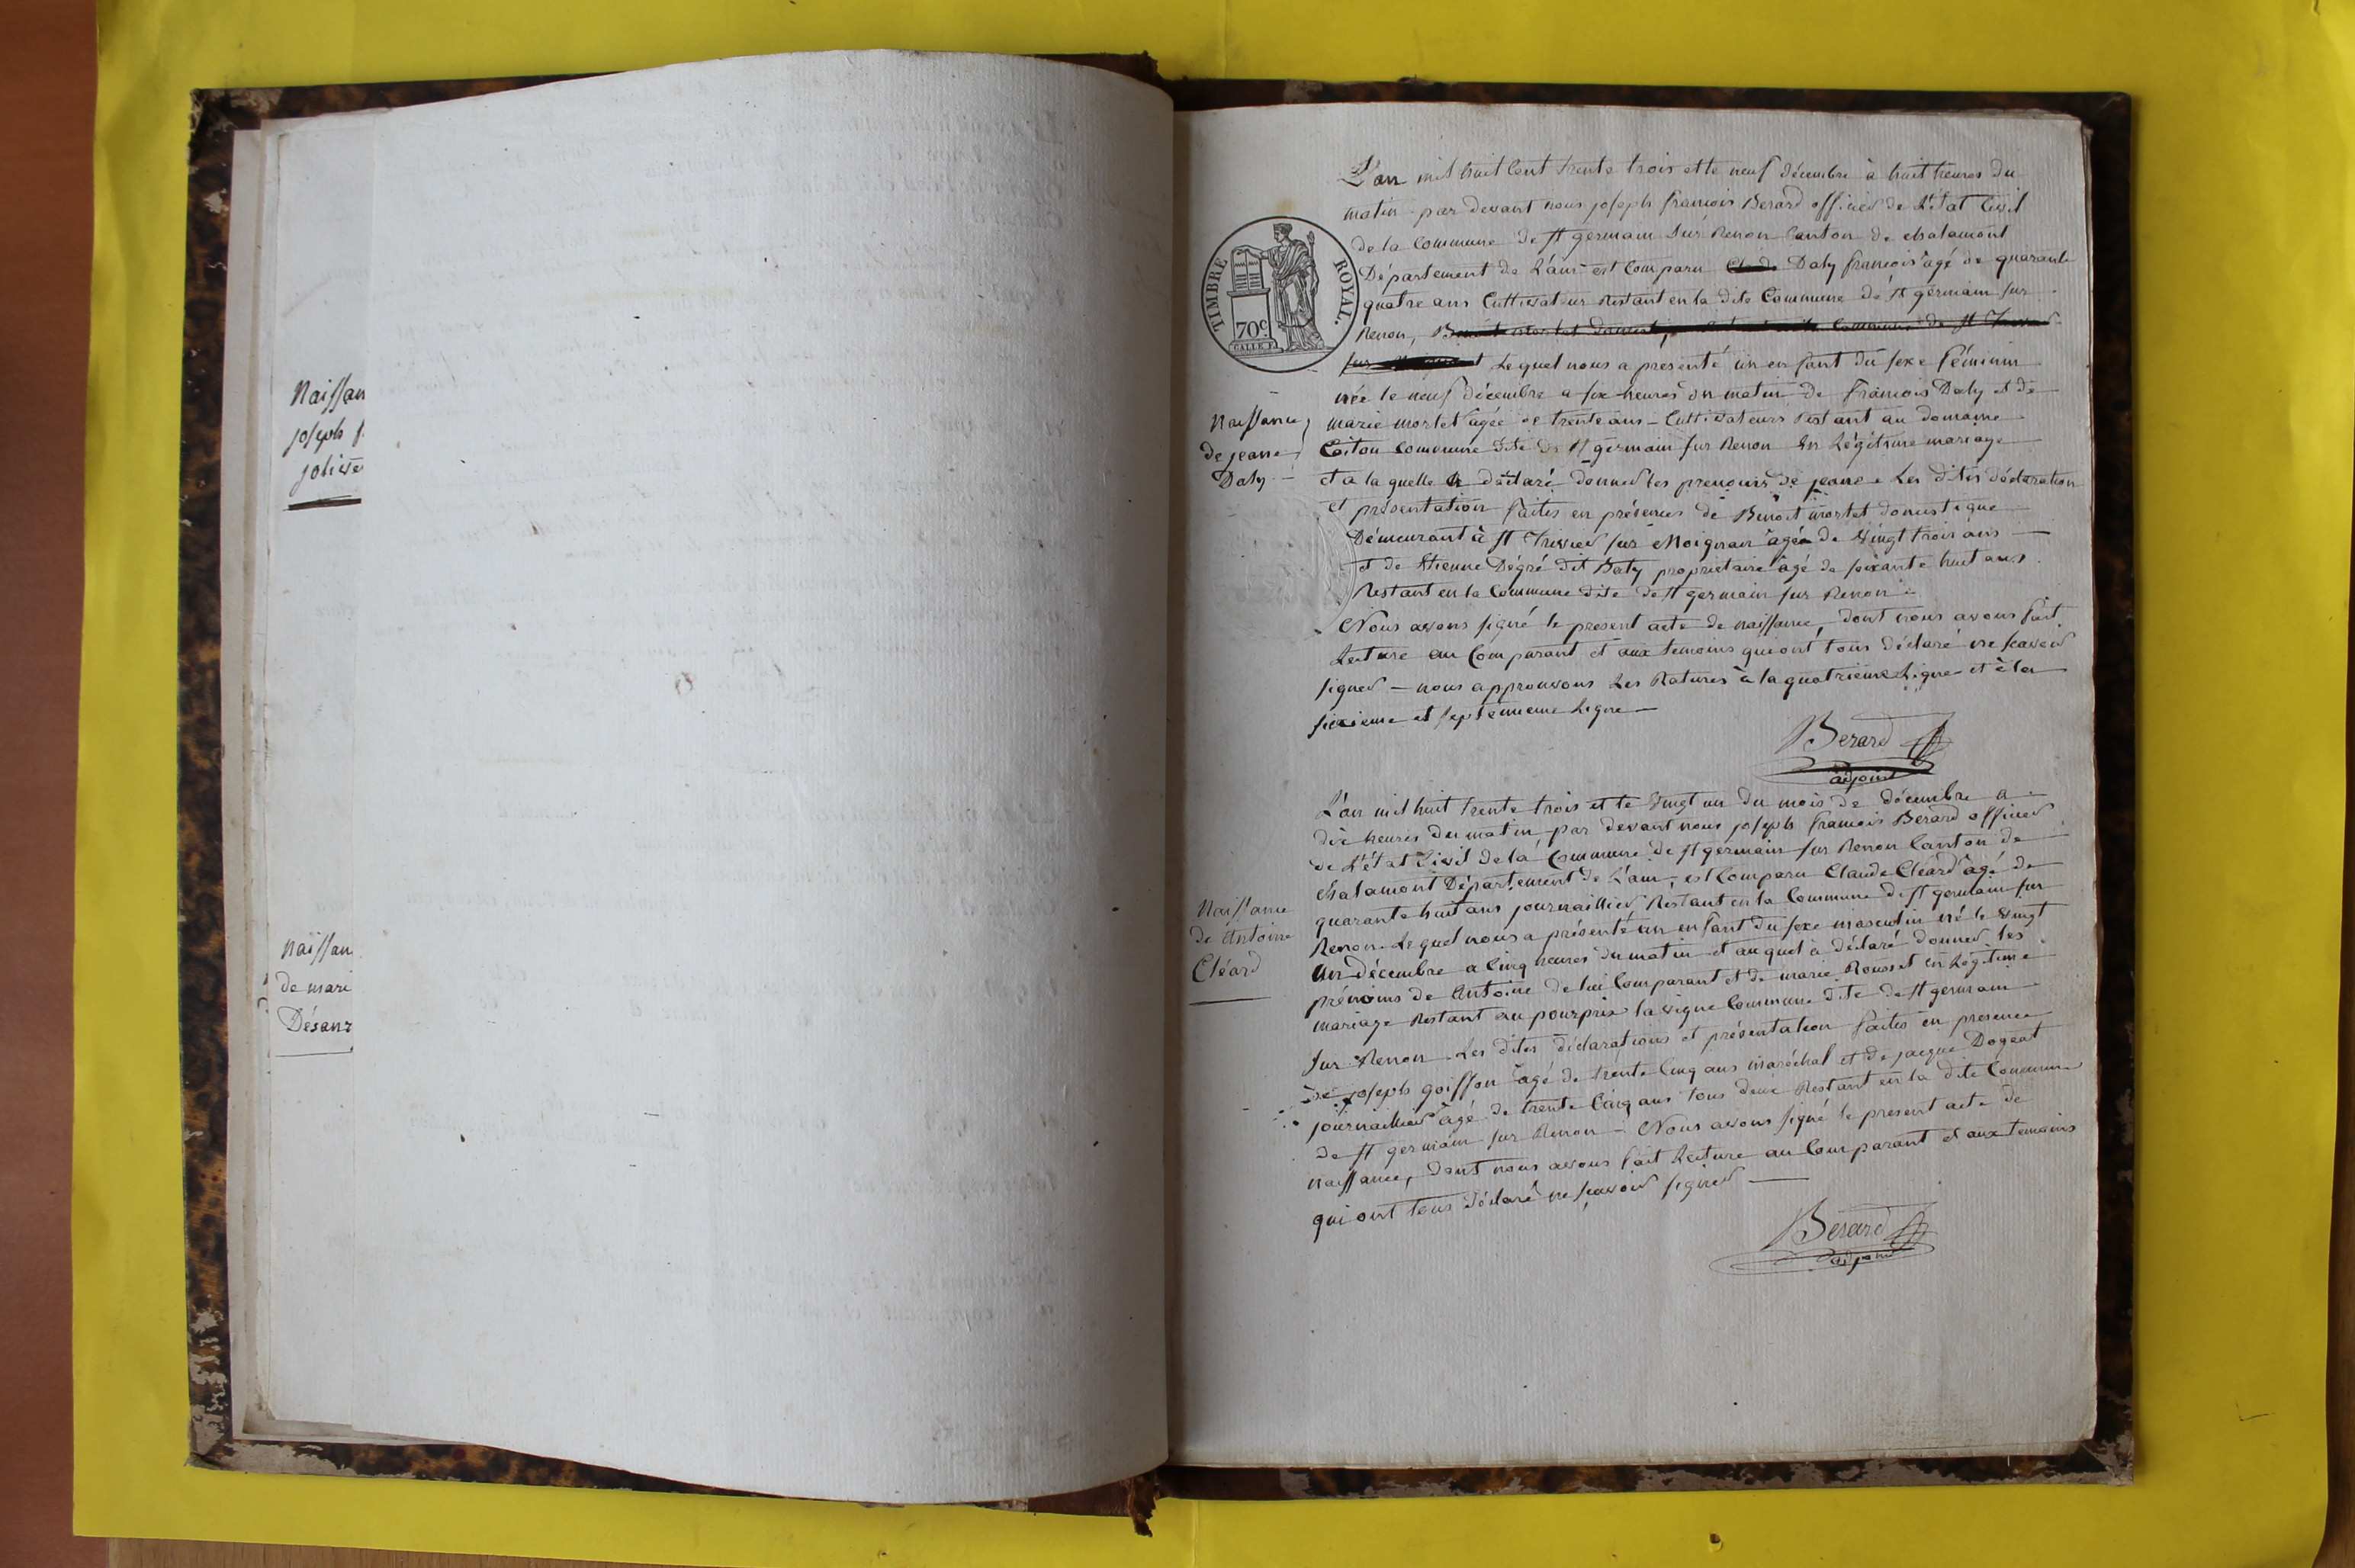 Naissan
joseph f.
jolivé
Naissan
de mari
Désanz
TIMBRE ROYAL.
70c
CALLE F.
L'an mil huit Cent trente trois et le neuf décembre à huit heures du
matin par devant nous joseph francois Berard officier de L'état Civil
de la Commune de St germain sur Renon Canton de chalamont
Département de L'ain est Comparu Daty francois âgé de quarante
quatre ans Cultivateur Restant en la dite Commune de St germain sur
Renon,
Lequel nous a presenté un enfant du sexe féminin
née le neuf décembre a six heures du matin de francois Daty et de
marie mortel agée de trente ans - Cultivateurs Restant au domaine
Coiton commune dite de St germain sur Renon En Légitime mariage
et a la quelle a déclaré donner les prenoms de jeanne Les dites déclaration
et présentation faites en présences de Benoit mortel domestique
Démeurant à St Trivier sur Moignan âgé de Vingt trois ans
et de Etienne Dégré dit Baty propriétaire âgé de soixante huit ans
Restant en la Commune dite de St germain sur Renon
Nous avons signé le present acte de naissance, dont nous avons fait
Lecture au Comparant et aux temoins qui ont tous déclaré ne scavoir
signer - nous approuvons Les Ratures à la quatrième Ligne et à la
sixieme et septemieme Ligne
Naissance
de jeanne
Daty
Berard
adjoint
L'an mil huit trente trois et le Vingt un du mois de décembre a
dix heures du matin par devant nous joseph francois Berard officier
de L'état Civil de la Commune de St germain sur Renon Canton de
chalamont Département de L'ain, est Comparu Claude Cléard âgé de
quarante huit ans journaillier Restant en la Commune de St germain sur
Renon. Lequel nous a présenté un enfant du sexe masculin né le Vingt
un décembre a Cinq heures du matin et auquel à déclaré donner les
prénoms de Antoine de lui Comparant et de marie Rousset en Légitime
mariage Restant au pourprix la vigne Commune dite de St germain
sur Renon Les dites déclarations et présentation faites en presence
de joseph goiffon âgé de trente Cinq ans maréchal et de jacque Dogeat
journaillier âgé de trente Cinq ans tous deux Restant en la dite Commune
de St germain sur Renon - Nous avons signé le present acte de
naissance, dont nous avons fait Lecture au Comparant et aux temoins
qui ont tous déclaré ne scavoir signer
Naissance
de Antoine
Cléard
Berard
adjoint